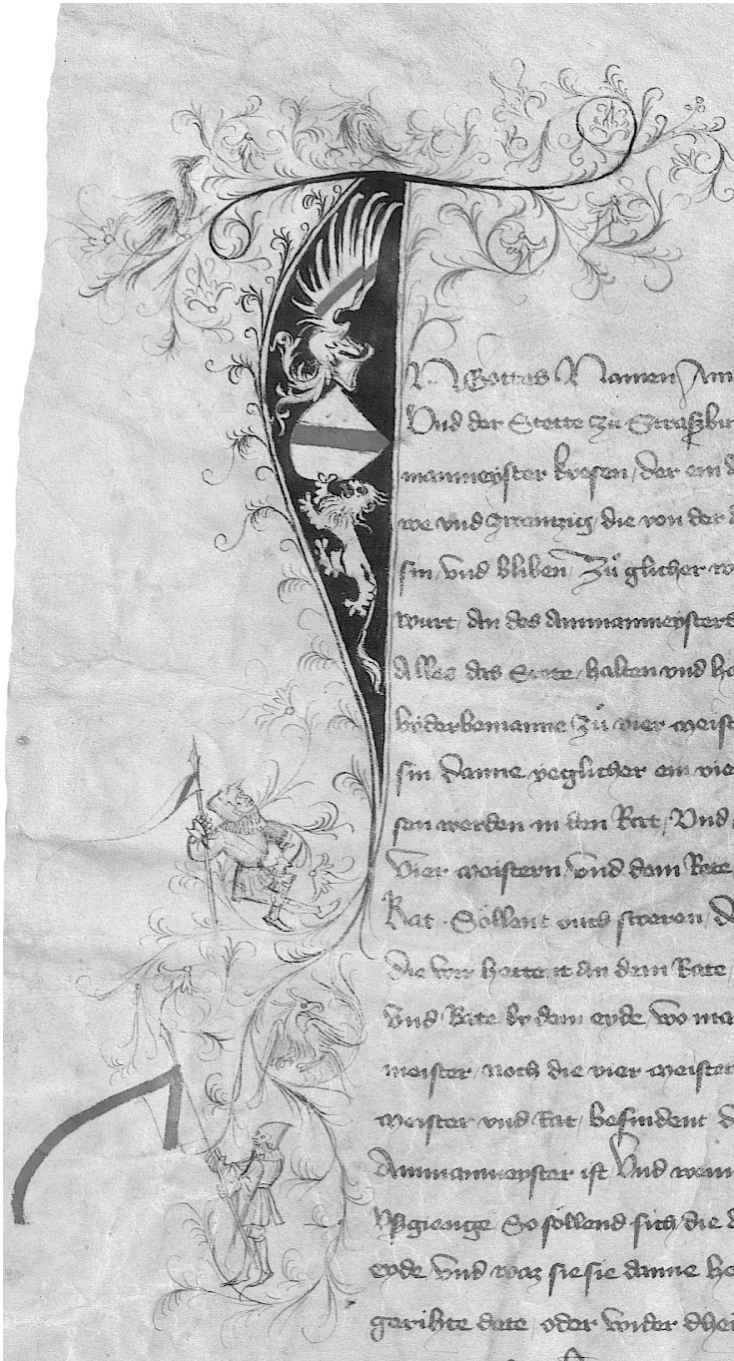 N Gottes Namen Am
Vnd der Stette zů Straszbur
manmeyster kiesen / der ein
we vnd zwentzig / die von der
sin / vnd bliben / Zů glicher w
wurt / an des Ammanmeysters
Alles das Stete / halten vnd ha
byderbemanne / zů vier meist
sin danne yeglicher ein vie
sen werden in den Rat / Vnd
Vier meistern / vnd dem Rate
Rat · Söllent ouch sweren / d
die wir hette it an dem Rate /
Vnd Rate by dem eyde / wo ma
meister / noch die vier meister
meister vnd Rat / befindent d
Ammanmeyster ist / Vnd wenn
Vsgienge So söllend sich die
eyde / Vnd waz sie sie danne he
gerihte dete / oder wider dhei